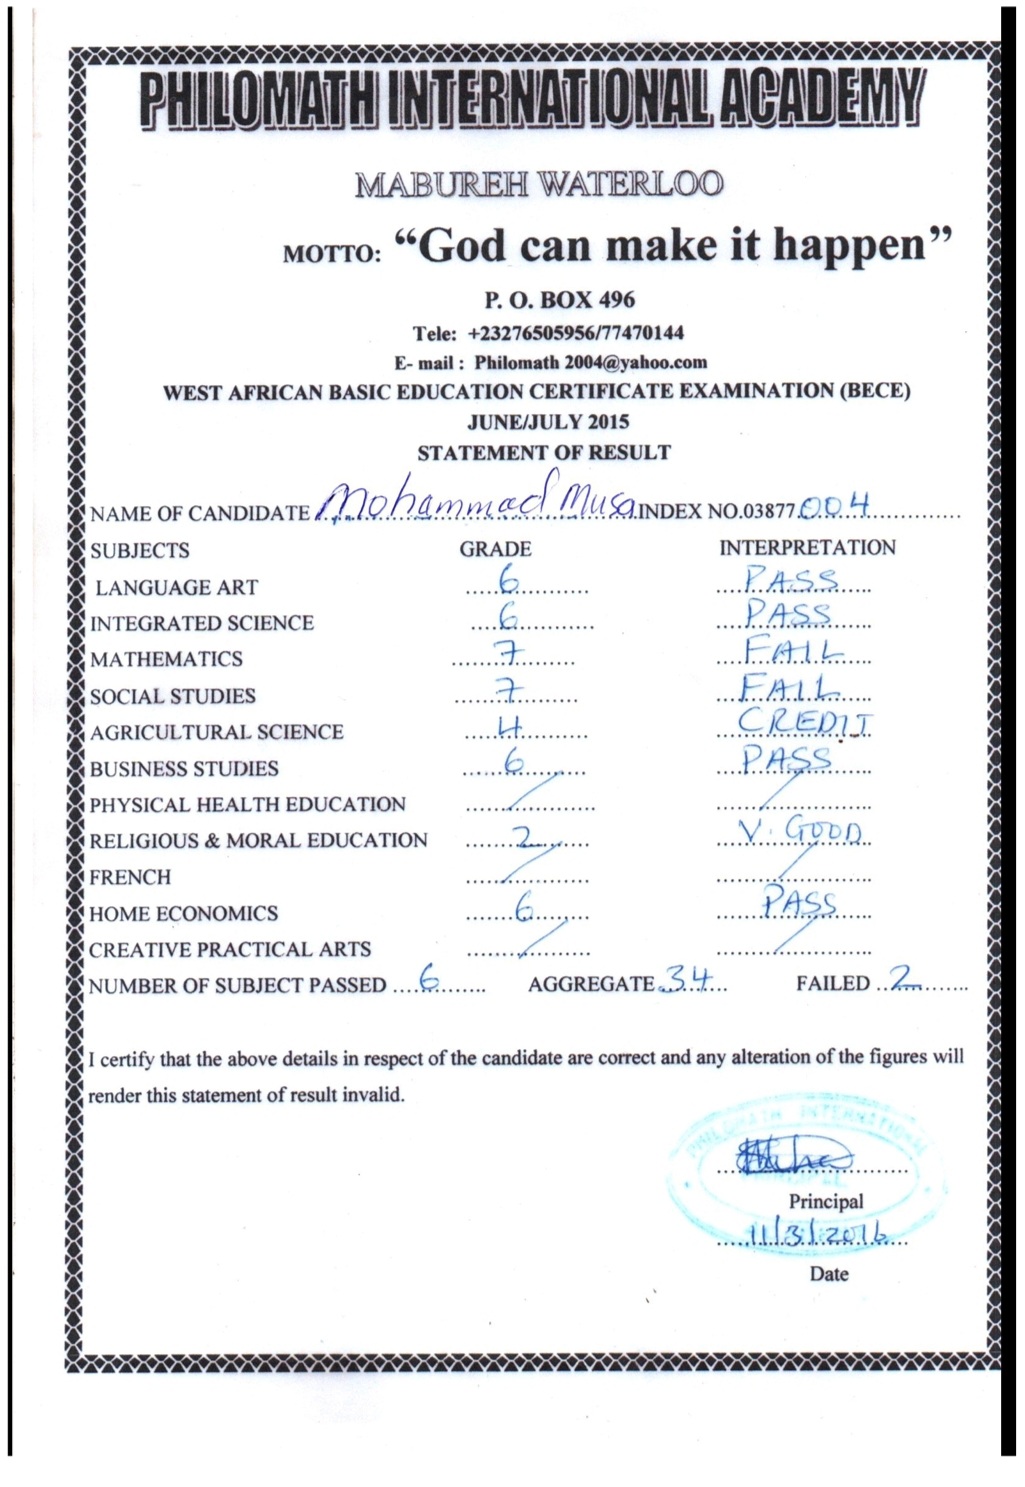 PHILOMATH INTERNATIONAL ACADEMY
MABUREH WATERLOO
MOTTO: “God can make it happen”
P. O. BOX 496
Tele: +23276505956/77470144
E- mail : Philomath 2004@yahoo.com
WEST AFRICAN BASIC EDUCATION CERTIFICATE EXAMINATION (BECE)
JUNE/JULY 2015
STATEMENT OF RESULT
NAME OF CANDIDATE Mohammad Musa INDEX NO.03877 004
SUBJECTS GRADE INTERPRETATION
LANGUAGE ART 6 PASS
INTEGRATED SCIENCE 6 PASS
MATHEMATICS 7 FAIL
SOCIAL STUDIES 7 FAIL
AGRICULTURAL SCIENCE 4 CREDIT
BUSINESS STUDIES 6 PASS
PHYSICAL HEALTH EDUCATION / /
RELIGIOUS & MORAL EDUCATION 2 V. GOOD
FRENCH / /
HOME ECONOMICS 6 PASS
CREATIVE PRACTICAL ARTS / /
NUMBER OF SUBJECT PASSED 6 AGGREGATE 34 FAILED 2
I certify that the above details in respect of the candidate are correct and any alteration of the figures will
render this statement of result invalid.
PHILOMATH INTERNATIONAL
Principal
11/3/2016
Date